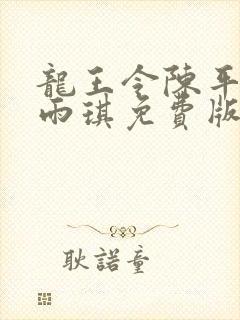 龍王令陳平
雨琪免費版
耿諾童